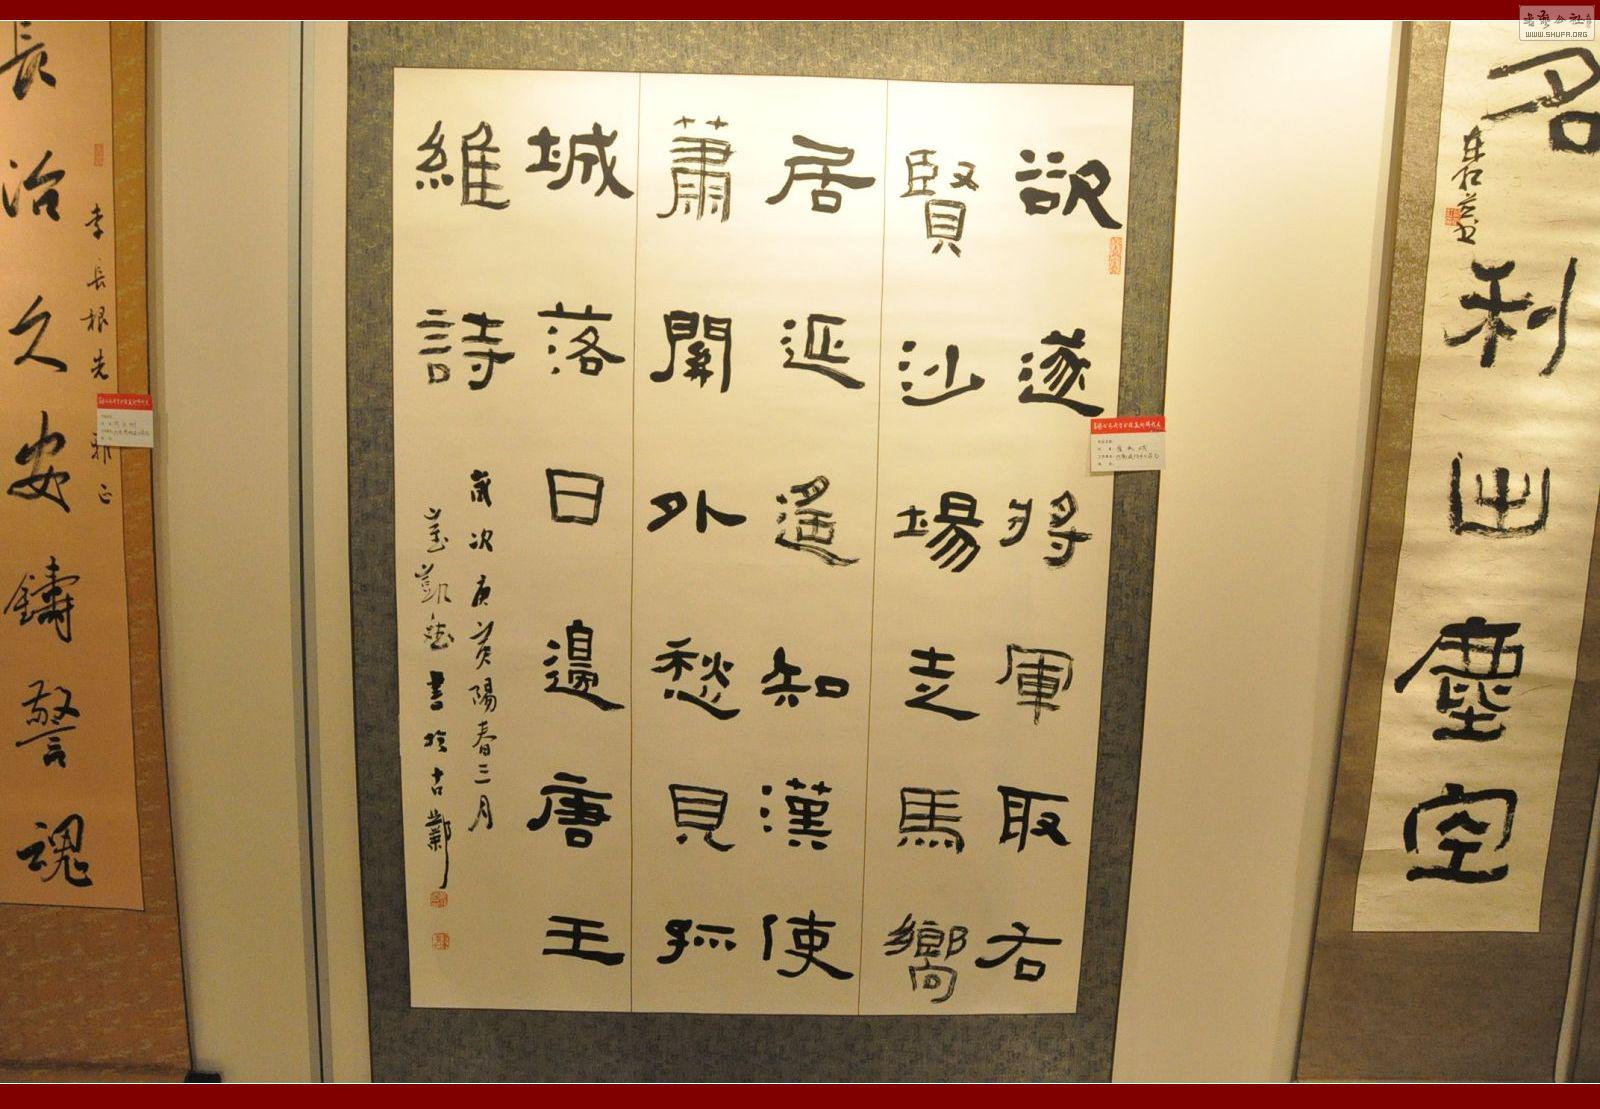 名利出塵空
欲逐將軍取右
賢沙場走馬嚮
居延遥知漢使
蕭關外愁見孤
城落日邊唐王
維詩
歲次庚寅陽春三月
書於古鄴
李長根先 雅正
長治久安鑄警魂
WWW.SHUFA.ORG